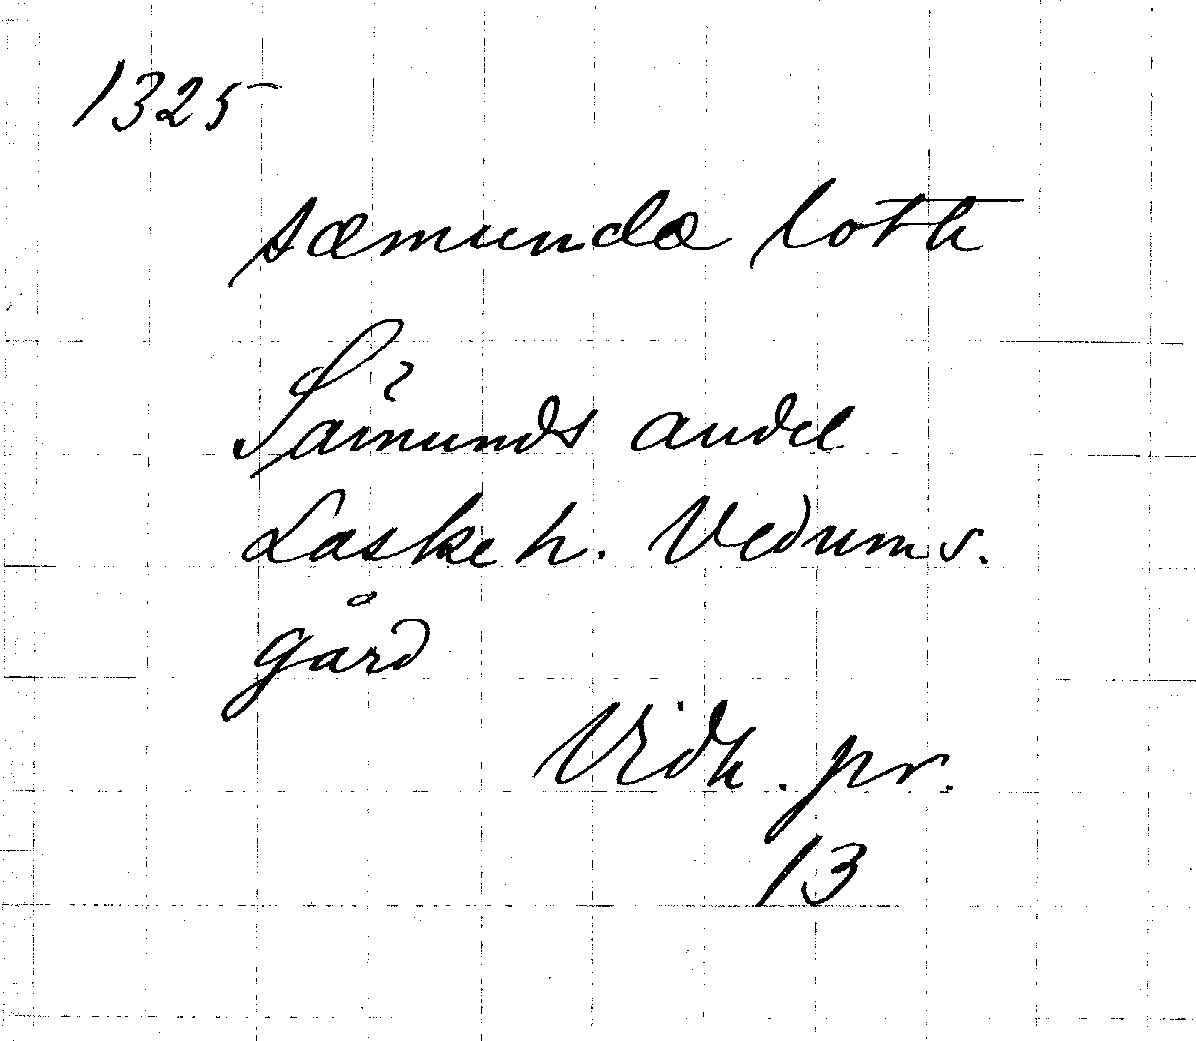 1325
sæmundæ loth
Sämunds andel
Laske h. Vedums s.
gård
Vidh. pr.
13